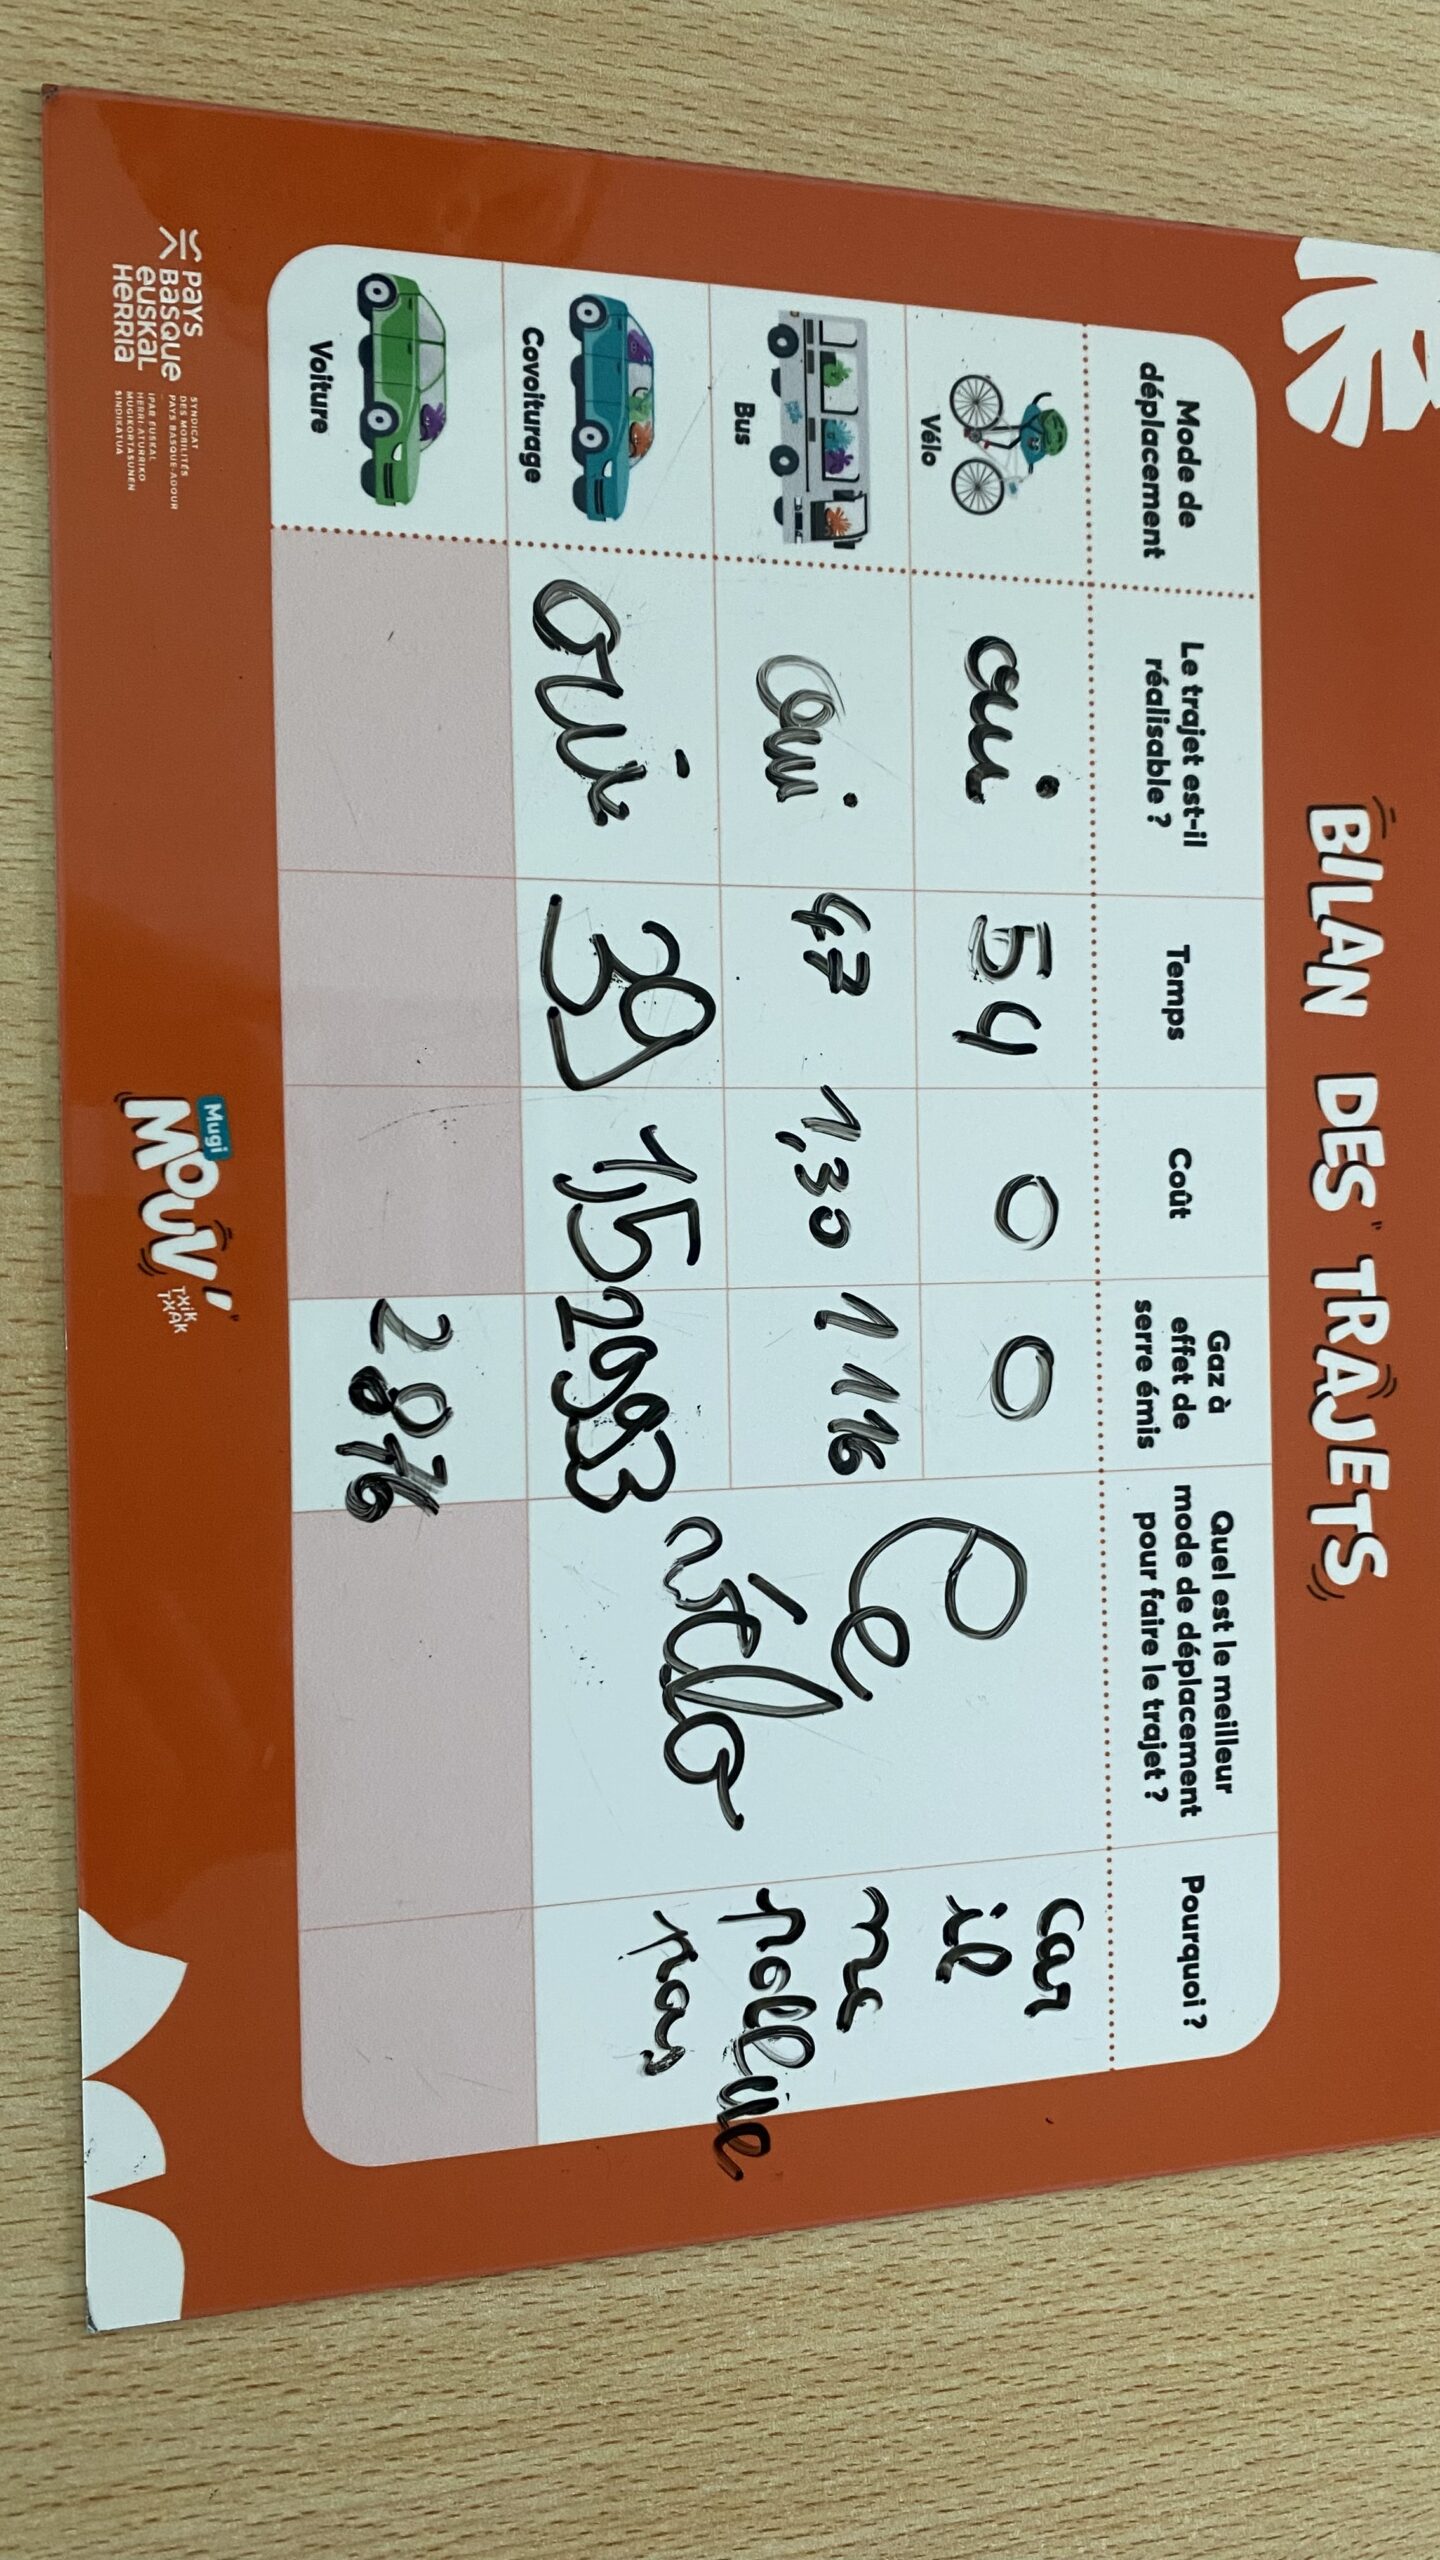 BILAN DES TRAJETS
Mode de
déplacement
Le trajet est-il
réalisable ?
Temps
Coût
Gaz à
effet de
serre émis
Quel est le meilleur
mode de déplacement
pour faire le trajet ?
Pourquoi ?
Vélo
oui
54
0
0
Bus
oui
47
1,30
1116
Covoiturage
oui
39
1,5
2993
Le
vélo
car
il
ne
pollue
pas
Voiture
2876
PAYS
BASQUE
EUSKAL
HERRIA
SYNDICAT
DES MOBILITÉS
PAYS BASQUE-ADOUR
IPAR EUSKAL
HERRI-ATURRIKO
MUGIKORTASUNEN
SINDIKATUA
Mugi
MOUV'
TXIK
TXAK